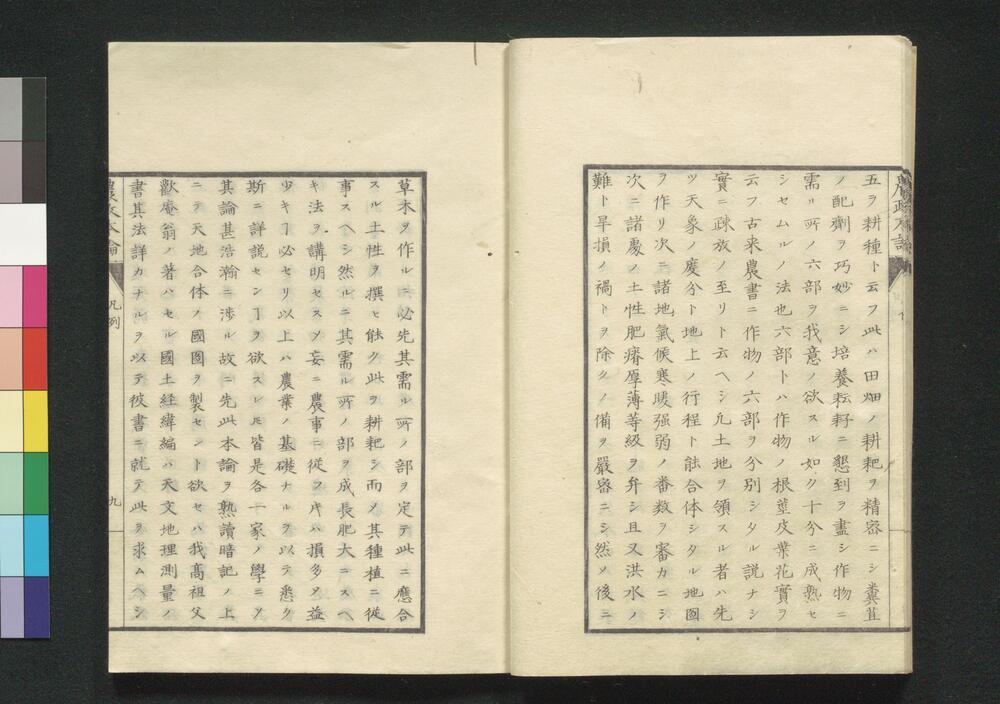 五ヲ耕種ト云フ此ハ田畑ノ耕耙ヲ精密ニシ糞苴
ノ配劑ヲ巧妙ニシ培養耘耔ニ懇到ヲ盡シ作物ニ
需ル所ノ六部ヲ我意ノ欲スル如ク十分ニ成熟セ
シセムルノ法也六部トハ作物ノ根莖皮葉花實ヲ
云フ古来農書ニ作物ノ六部ヲ分別シタル説ナシ
實ニ疎放ノ至リト云ヘシ凡土地ヲ領スル者ハ先
ツ天象ノ度分ト地上ノ行程ト能合体シタル地圖
ヲ作リ次ニ諸地氣候寒暖强弱ノ番数ヲ審カニシ
次ニ諸處ノ土性肥瘠厚薄等級ヲ弁シ且又洪水ノ
難ト旱損ノ禍トヲ除クノ備ヲ嚴密ニシ然ソ後ニ
草木ヲ作ルニ必先其需ル所ノ部ヲ定テ此ニ應合
スル土性ヲ撰ヒ能ク此ヲ耕耙シ而メ其種植ニ従
事スヘシ然ルニ其需ル所ノ部ヲ成長肥大ニスヘ
キ法ヲ講明セスメ妄ニ農事ニ従フ片ハ損多ク益
少キヿ必セリ以上ハ農業ノ基礎ナルヲ以テ悉ク
斯ニ詳説センヿヲ欲スレ𪜈皆是各一家ノ學ニソ
其論甚浩瀚ニ渉ル故ニ先此本論ヲ熟讀暗記ノ上
ニテ天地合体ノ國圖ヲ製セント欲セハ我高祖父
歡庵翁ノ著ハセル國土経緯編ハ天文地理測量ノ
書其法詳カナルヲ以テ彼書ニ就テ此ヲ求ムヘシ
農政本論
凡例
九